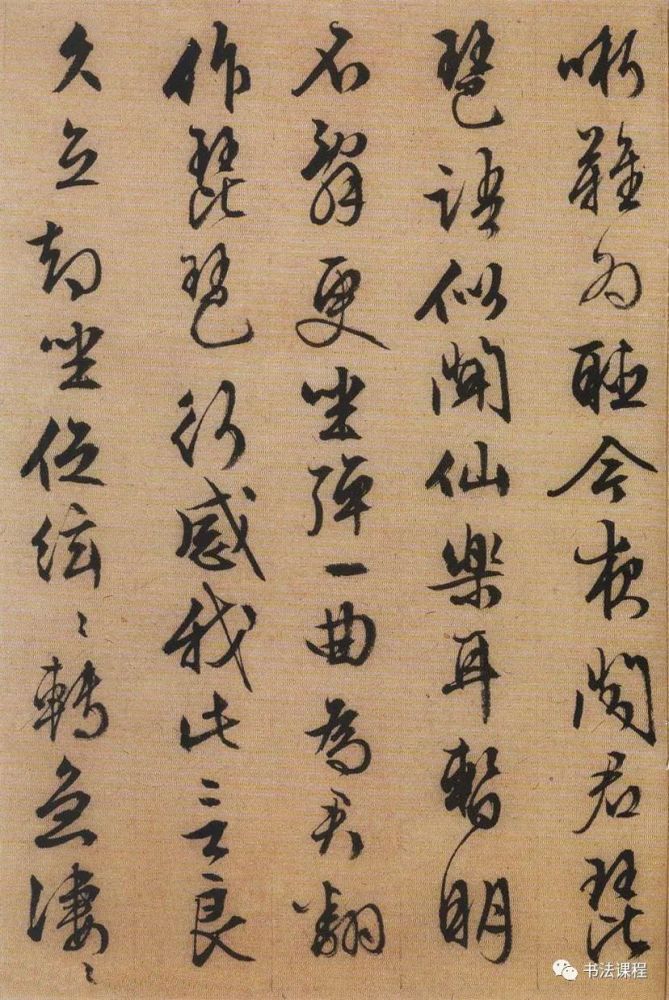 哳難為聽今夜聞君琵
琶語似聞仙樂耳暫明
不辭更坐彈一曲為君翻
作琵琶行感我此言良
久立却坐促絃〻轉急凄〻
书法课程